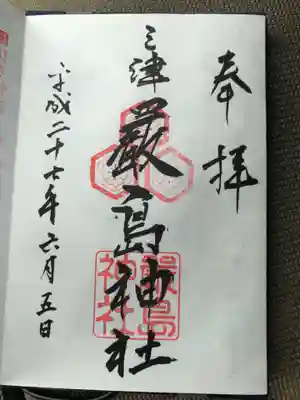 奉拝
三津
厳島神社
嚴島神社
平成二十七年六月五日